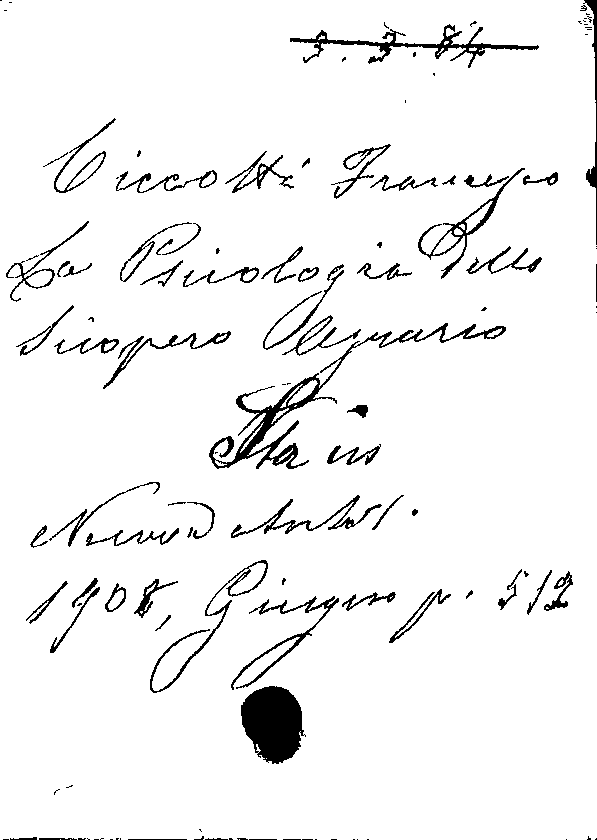 3.3.84
Ciccotti Francesco
La Psicologia Dello
Sciopero Agrario
Sta in
Nuova Antol.
1908, Giugno p. 512